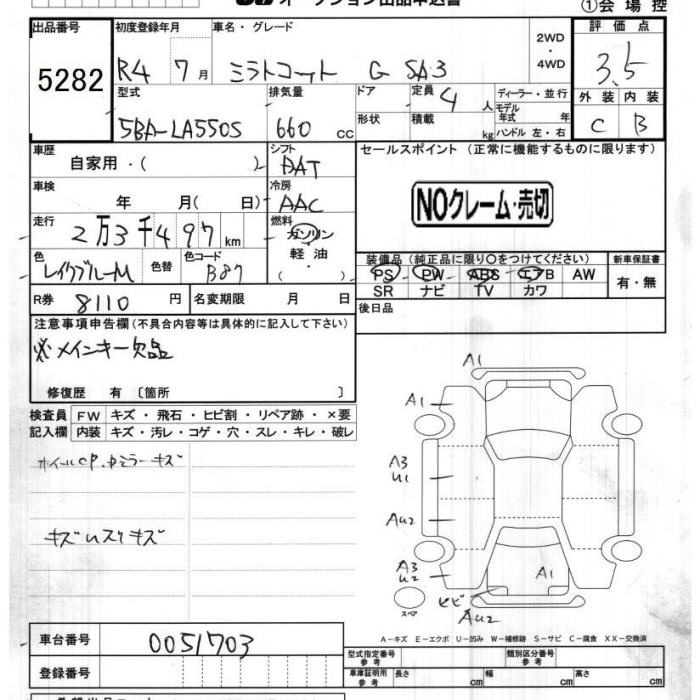 オークション出品申込書
①会場控
出品番号 初度登録年月 車名・グレード 2WD・4WD 評価点
5282 R4 7月 ミラトコット G SA3 3.5
型式 排気量 ドア 定員 4 人 ディーラー・並行 外装 内装
5BA-LA550S 660 cc 形状 積載 kg モデル年式 年 ハンドル 左・右 C B
車歴 シフト セールスポイント (正常に機能するものに限ります)
自家用・( ) DAT
車検 年 月( 日) 冷房 AAC NOクレーム・売切
走行 2万3千497km 燃料 ガソリン 軽油 ( ・ )
色 レイクブルーM 色替 色コード B87
装備品 (純正品に限り○をつけてください) 新車保証書
PS PW ABS エアB AW 有・無
SR ナビ TV カワ
R券 8110 円 名変期限 月 日 後日品
注意事項申告欄 (不具合内容等は具体的に記入して下さい)
※メインキー欠品
修復歴 有 〔箇所 〕
検査員 FW キズ・飛石・ヒビ割・リペア跡・×要
記入欄 内装 キズ・汚レ・コゲ・穴・スレ・キレ・破レ
ホイールCP.
ミラーキズ
A1
A1
A3
U1
AU2
A3
U2
A1
ヒビ
AU2
スペア
A-キズ E-エクボ U-凹み W-補修跡 S-サビ C-腐食 XX-交換済
車台番号 0051703 型式指定番号 参考 類別区分番号 参考
登録番号 車庫証明用 参考 長さ cm 幅 cm 高さ cm